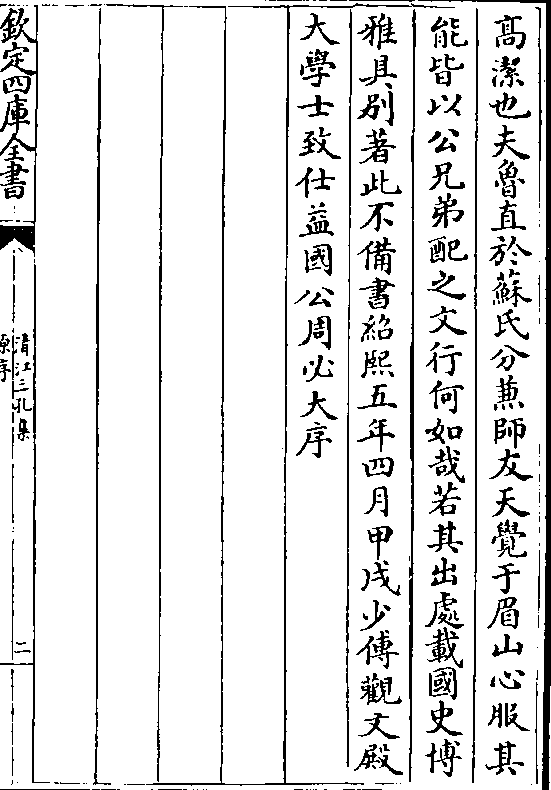 髙潔也夫魯直於蘇氏分兼師友天覺于眉山心服其
能皆以公兄弟配之文行何如哉若其出處載國史博
雅具别著此不備書紹熙五年四月甲戌少傅觀文殿
大學士致仕益國公周必大序
欽定四庫全書
清江三孔集
原序
二